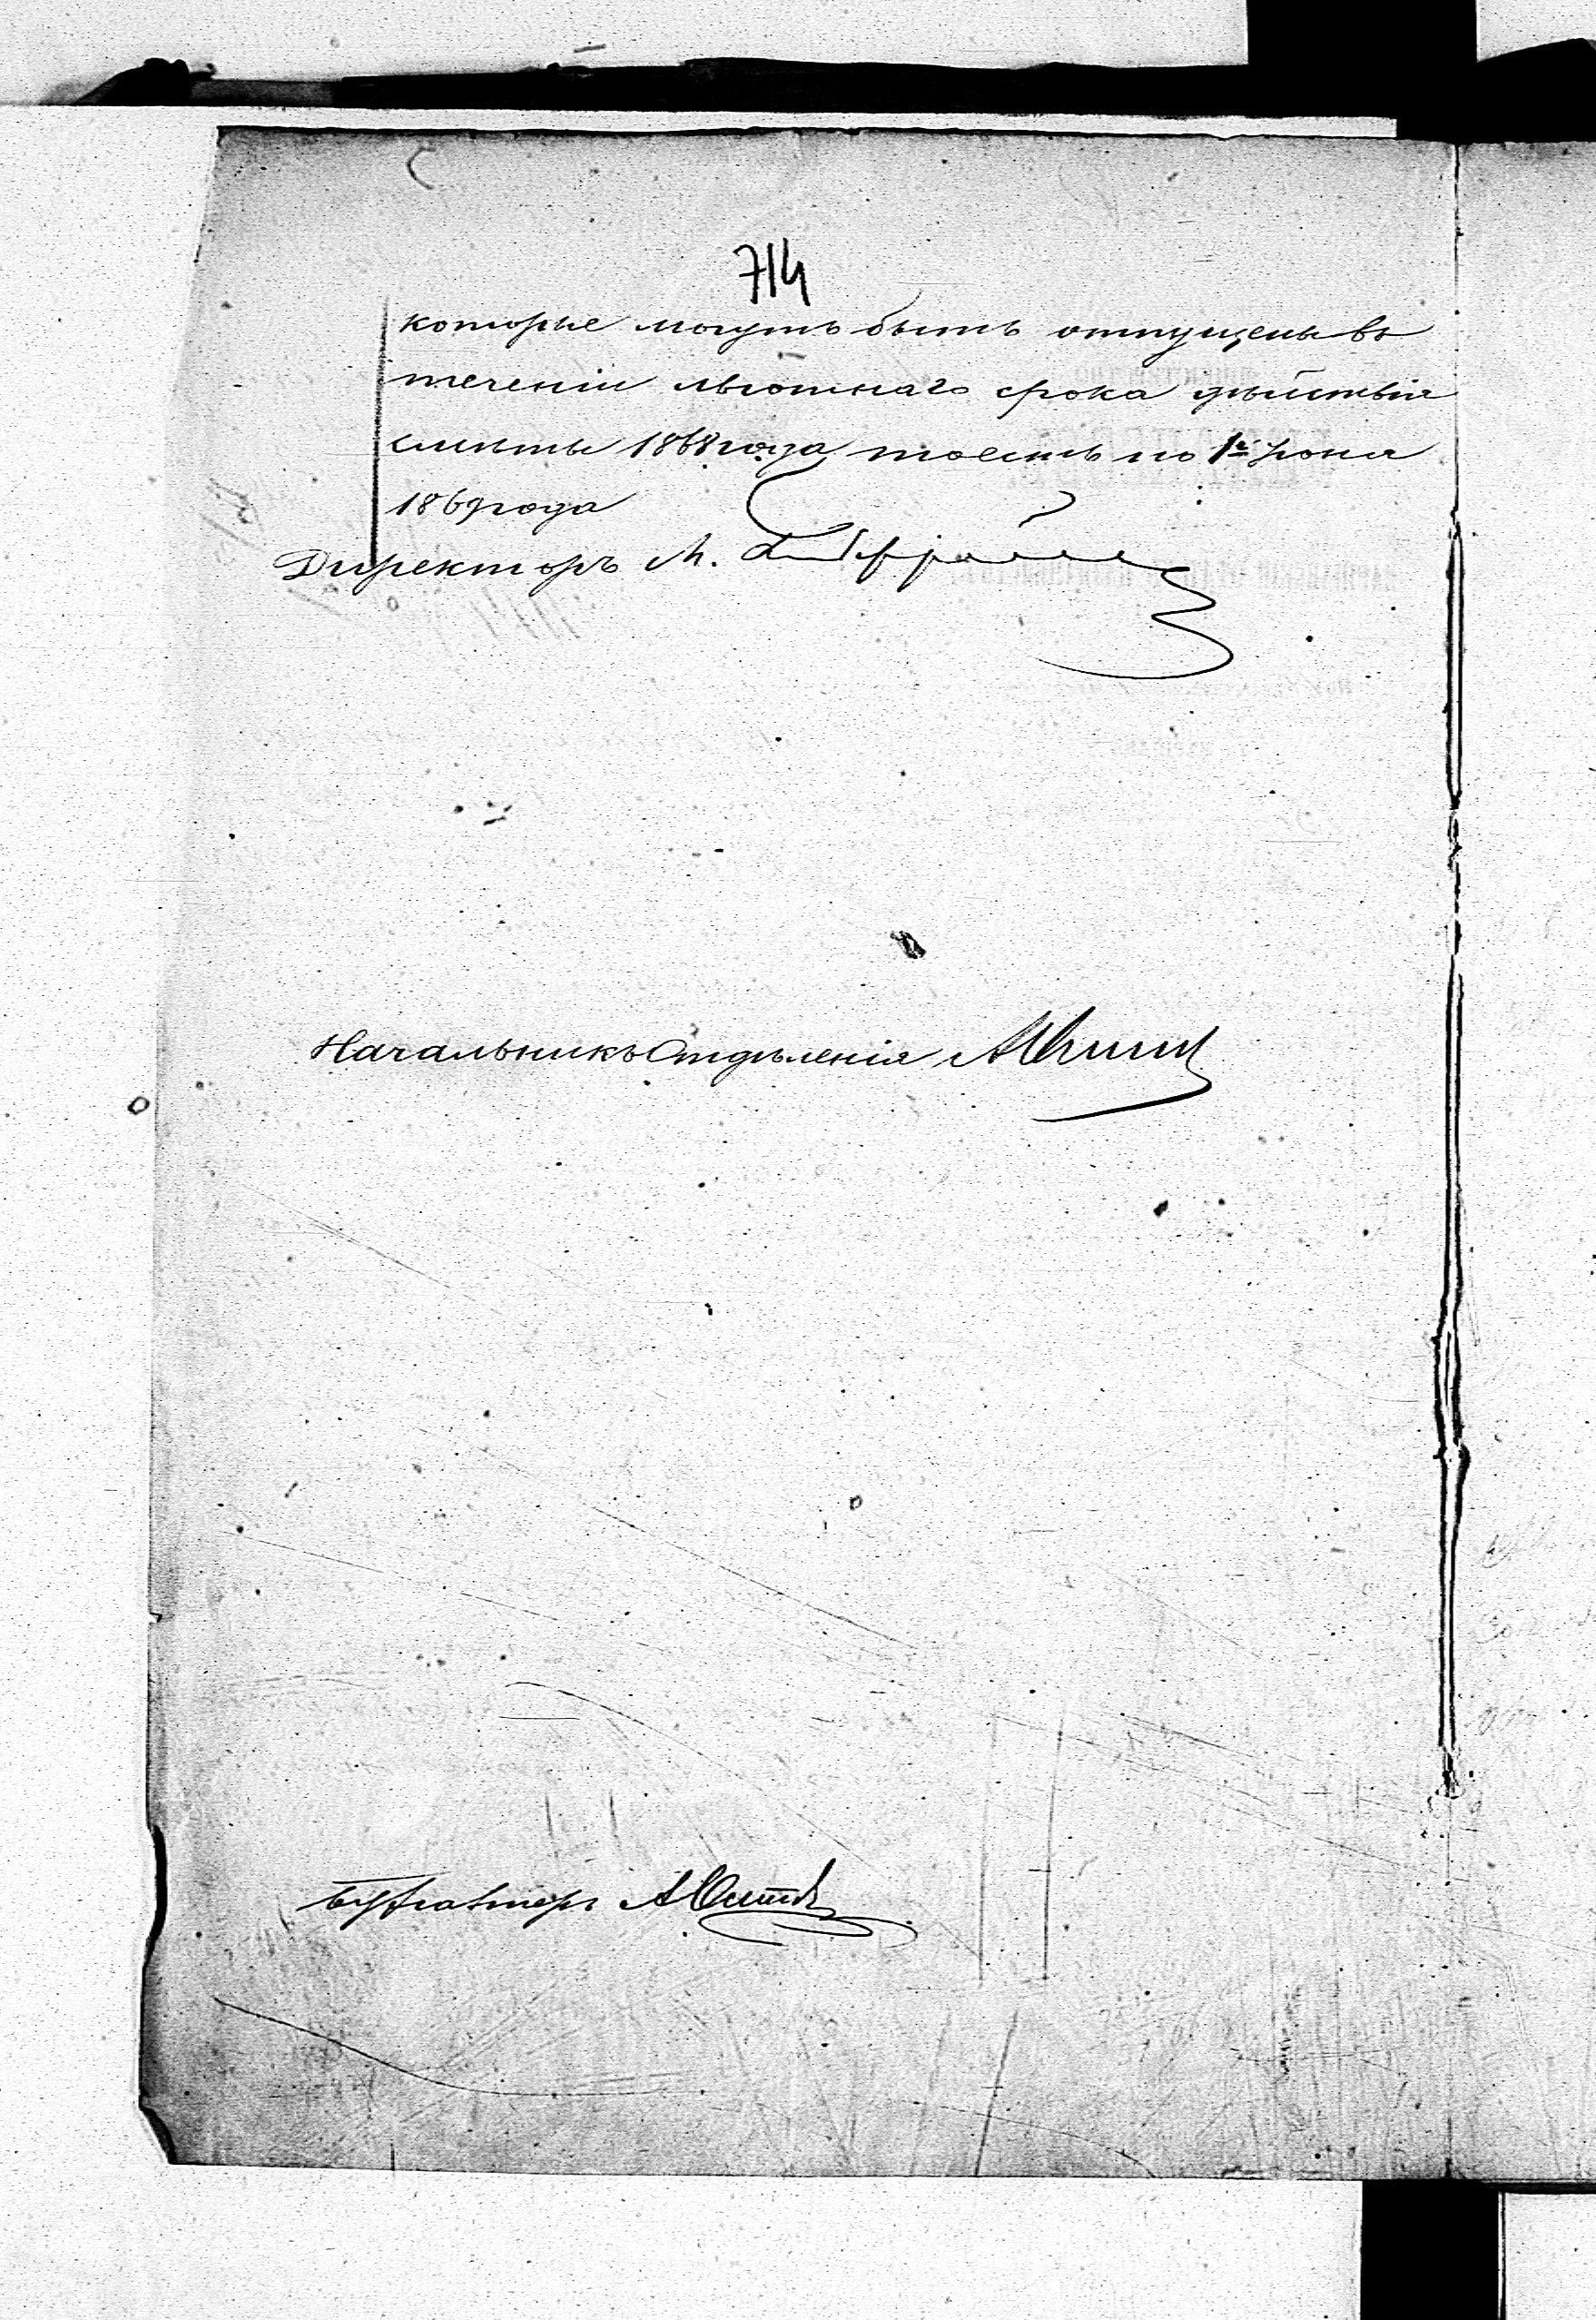 714
которые могутъ быть отпущены въ
теченіи льготнаго срока дѣйствія
смѣты 1868 года, тоесть по 1е Іюня
1869 года
Директоръ М.
Начальникъ Отдѣленія
Бухгалтеръ А